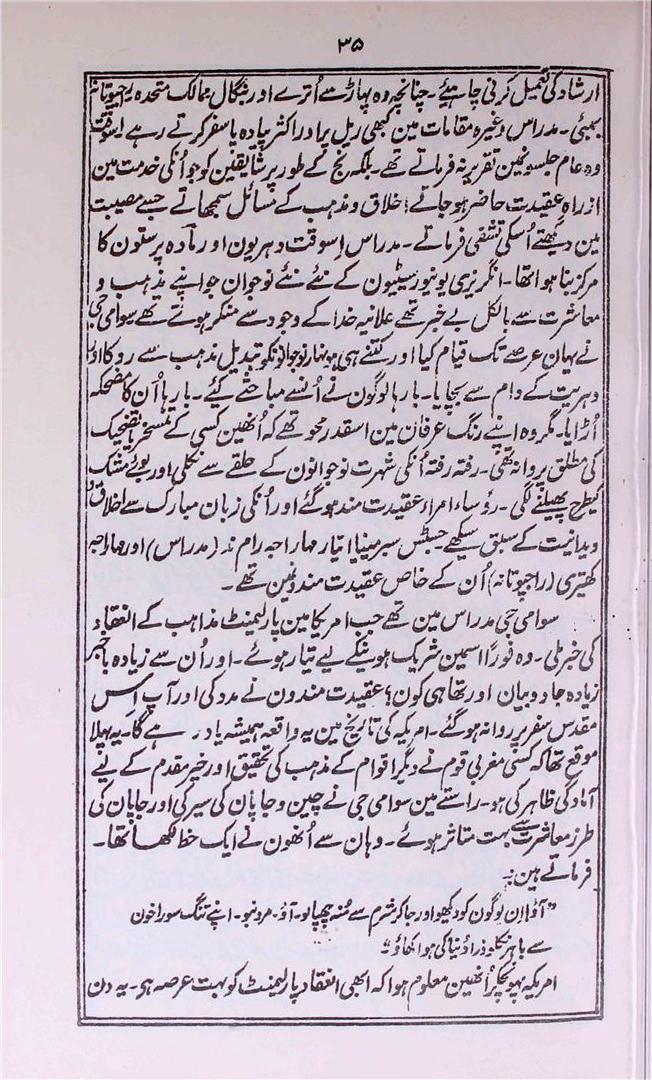 ۳۵
ارشاد کی تعمیل کرنی چاہیے۔ چنانچہ وہ پہاڑ سے اُترے اور بنگال ممالک متحدہ راجپوتانہ
بمبئی۔ مدراس وغیرہ مقامات مین کبھی ریل پر اور اکثر پیادہ پا سفر کرتے رہے اسوقت
وہ عام جلسونمین تقریر نہ فرماتے تھے۔ بلکہ نج کے طور پر شایقین کو جو اُنکی خدمت مین
از راہِ عقیدت حاضر ہو جاتے اخلاق و مذہب کے مسائل سمجھاتے جسے مصیبت
مین دیکھتے اُسکی تشفی فرماتے۔ مدراس اِسوقت دہریون اور مادہ پرستون کا
مرکز بنا ہوا تھا۔ انگریزی یونیورسیٹیون کے نئے نئے نوجوان جو اپنے مذہب و
معاشرت سے بالکل بے خبر تھے علانیہ خدا کے وجود سے منکر ہوتے تھے سوامی جی
نے یہان عرصے تک قیام کیا اور کتنے ہی ہونہار نوجوانونکو تبدیل مذہب سے روکا اور
دہریت کے دام سے بچایا۔ بارہا لوگون نے اُنسے مباحثے کیے۔ بارہا اُن کا مضحکہ
اُڑایا۔ مگر وہ اپنے رنگ عرفان مین اسقدر محو تھے کہ اُنھین کسی کے تمسخر یا تضحیک
کی مطلق پروا نہ تھی۔ رفتہ رفتہ اُنکی شہرت نوجوانون کے حلقے سے نکلی اور بوئے مشک
کیطرح پھیلنے لگی۔ رؤساء امراء عقیدت مند ہو گئے اور اُنکی زبان مبارک سے اخلاق و
ویدانیت کے سبق سیکھے۔ جسٹس سبرمینیا ایّار مہاراجہ رام ند (مدراس) اور مہاراجہ
کھتیری (راجپوتانہ) اُن کے خاص عقیدت مندونمین تھے۔
سوامی جی مدراس مین تھے جب امریکا مین پارلیمنٹ مذاہب کے انعقاد
کی خبر ملی۔ وہ فوراً اسمین شریک ہونیکے لیے تیار ہوئے۔ اور اُن سے زیادہ باخبر
زیادہ جادو بیان اور تھا ہی کون؟ عقیدت مندون نے مدد کی اور آپ اِس
مقدس سفر پر روانہ ہو گئے۔ امریکہ کی تاریخ مین یہ واقعہ ہمیشہ یادر ہے گا۔ یہ پہلا
موقع تھا کہ کسی مغربی قوم نے دیگر اقوام کے مذہب کی تحقیق اور خیر مقدم کے لیے
آمادگی ظاہر کی ہو۔ راستے مین سوامی جی نے چین و جاپان کی سیر کی اور جاپان کی
طرز معاشرت سے بہت متاثر ہوئے۔ وہان سے اُنھون نے ایک خط لکھا تھا۔
فرماتے ہین :۔
"آؤ اِن لوگون کو دیکھو اور جا کر شرم سے مُنہ چھپا لو۔ آؤ۔ مرد بنو۔ اپنے تنگ سوراخون
سے باہر نکلو ذرا دُنیا کی ہوا کھاؤ"۔
امریکہ پہونچکر اُنھین معلوم ہوا کہ ابھی انعقاد پارلیمنٹ کو بہت عرصہ ہی۔ یہ دن